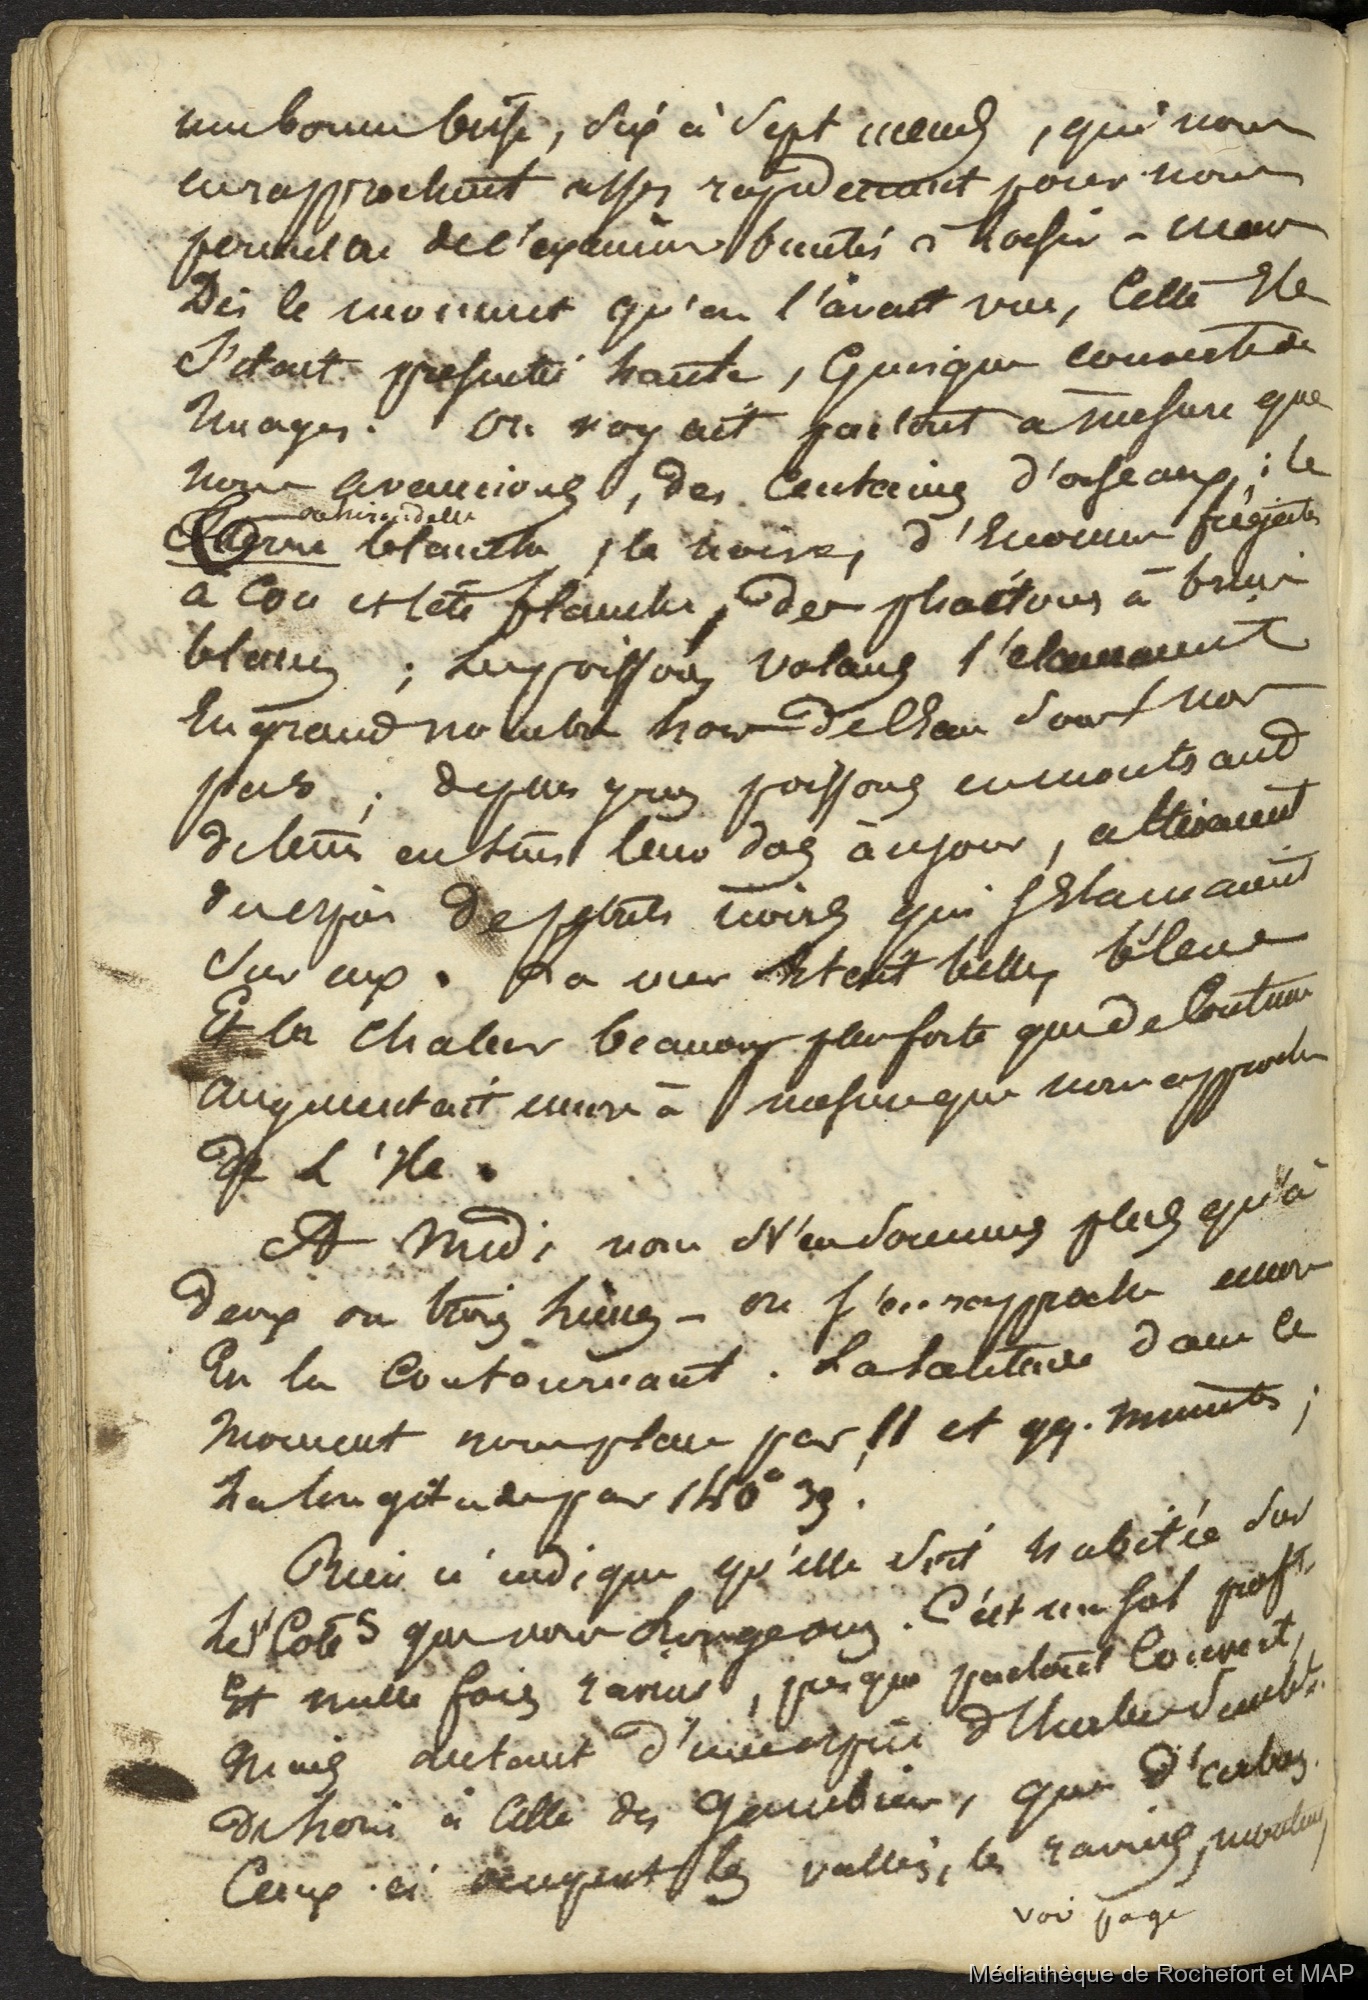 une bonne brise, six à sept nœuds, qui nous
en rapprochait assez rapidement pour nous
permettre de l'examiner bientôt à loisir - mais
Dès le moment qu'on l'avait vue, Cette Ile
s'était présentée haute, Quoique couverte de
Nuages. On voyait partout à mesure que
nous avancions, des Centaines d'oiseaux ; le
ou hirondelle
Sterne blanche, la noire, d'Enormes frégates
à Cou et tête blanche, des phaétons à brins
blancs ; les poissons volans s'élançaient
En grand nombre hors De l'Eau sous nos
pas ;
poissons en montrant
de tems en tems leur dos à jour, attiraient
de petits noirs qui s'Elançaient
sur eux. La mer Etait belle, bleue
Et la chaleur beaucoup plus forte que de Coutume
augmentait encore à mesure que nous approch
de L'Ile.
A Midi nous N'en sommes plus qu'à
Deux ou trois lieues - on s'en rapproche encore
En la Contournant. La Latitude dans ce
Moment nous place par 11 et 49. minutes ;
La longitude par 140° 39'.
Rien n'indique qu'elle soit habitée sur
Les Côtés que nous Longeons. C'est un sol
Et mille fois raviné, presque partout Couvert,
Mais autant d'une espèce d'herbe
à Celle des Gambier, que d'arbres.
Ceux-ci occupent les vallées, les ravins,
voir page
Médiathèque de Rochefort et MAP